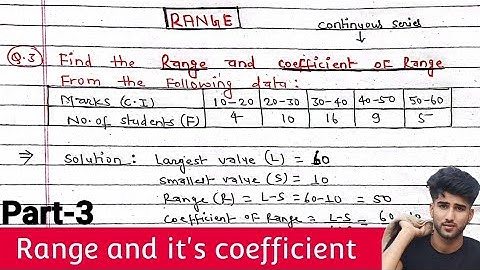 RANGE
continuous series
Q.3 Find the Range and coefficient of Range
From the Following data:
Marks (C.I) 10-20 20-30 30-40 40-50 50-60
No. of students (F) 4 10 16 9 5
⇒ Solution: Largest value (L) = 60
Smallest value (S) = 10
Range (R) = L-S = 60-10 = 50
coefficient of Range = L-S = 60
Part-3
Range and it's coefficient